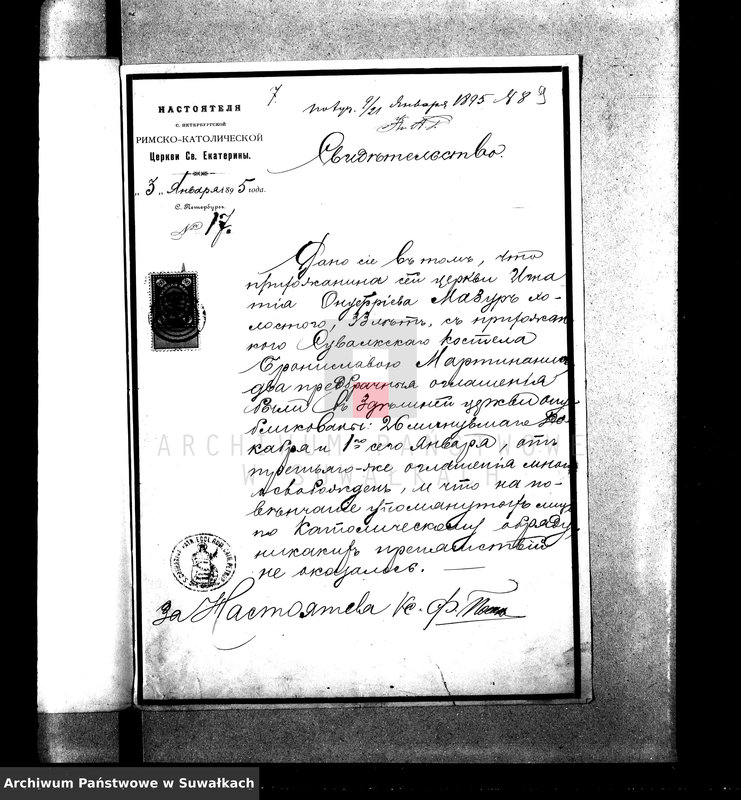 7.
НАСТОЯТЕЛЯ
С. ПЕТЕРБУРГСКОЙ
РИМСКО-КАТОЛИЧЕСКОЙ
Церкви Св. Екатерины.
„ 3 „ Января 1895 года.
С. Петербургъ.
№ 17.
получ. 9/21 Января 1895 № 8 9
Свидѣтельство.
Дано сіе въ томъ, что
прихожанина сей церкви Игна-
тія Онуфріева Мазуръ хо-
лостого, 33 лѣтъ, съ прихожан
кого Сувалкскаго костела
Брониславою Мартинаиц
два предбрачныя оглашенія
были въ здѣшней церкви опу-
бликованы: 26 минувшаго Де-
кабря и 1го сего Января, отъ
третьяго-же оглашенія мною
освобожденъ, и что на по-
вѣнчаніе упомянутыхъ лицъ
по католическому обряду
никакихъ препятствій
не оказалось. —
За Настоятеля Кс. Ф.
ARCHIWUM PAŃSTWOWE
W SUWAŁKACH
Archiwum Państwowe w Suwałkach